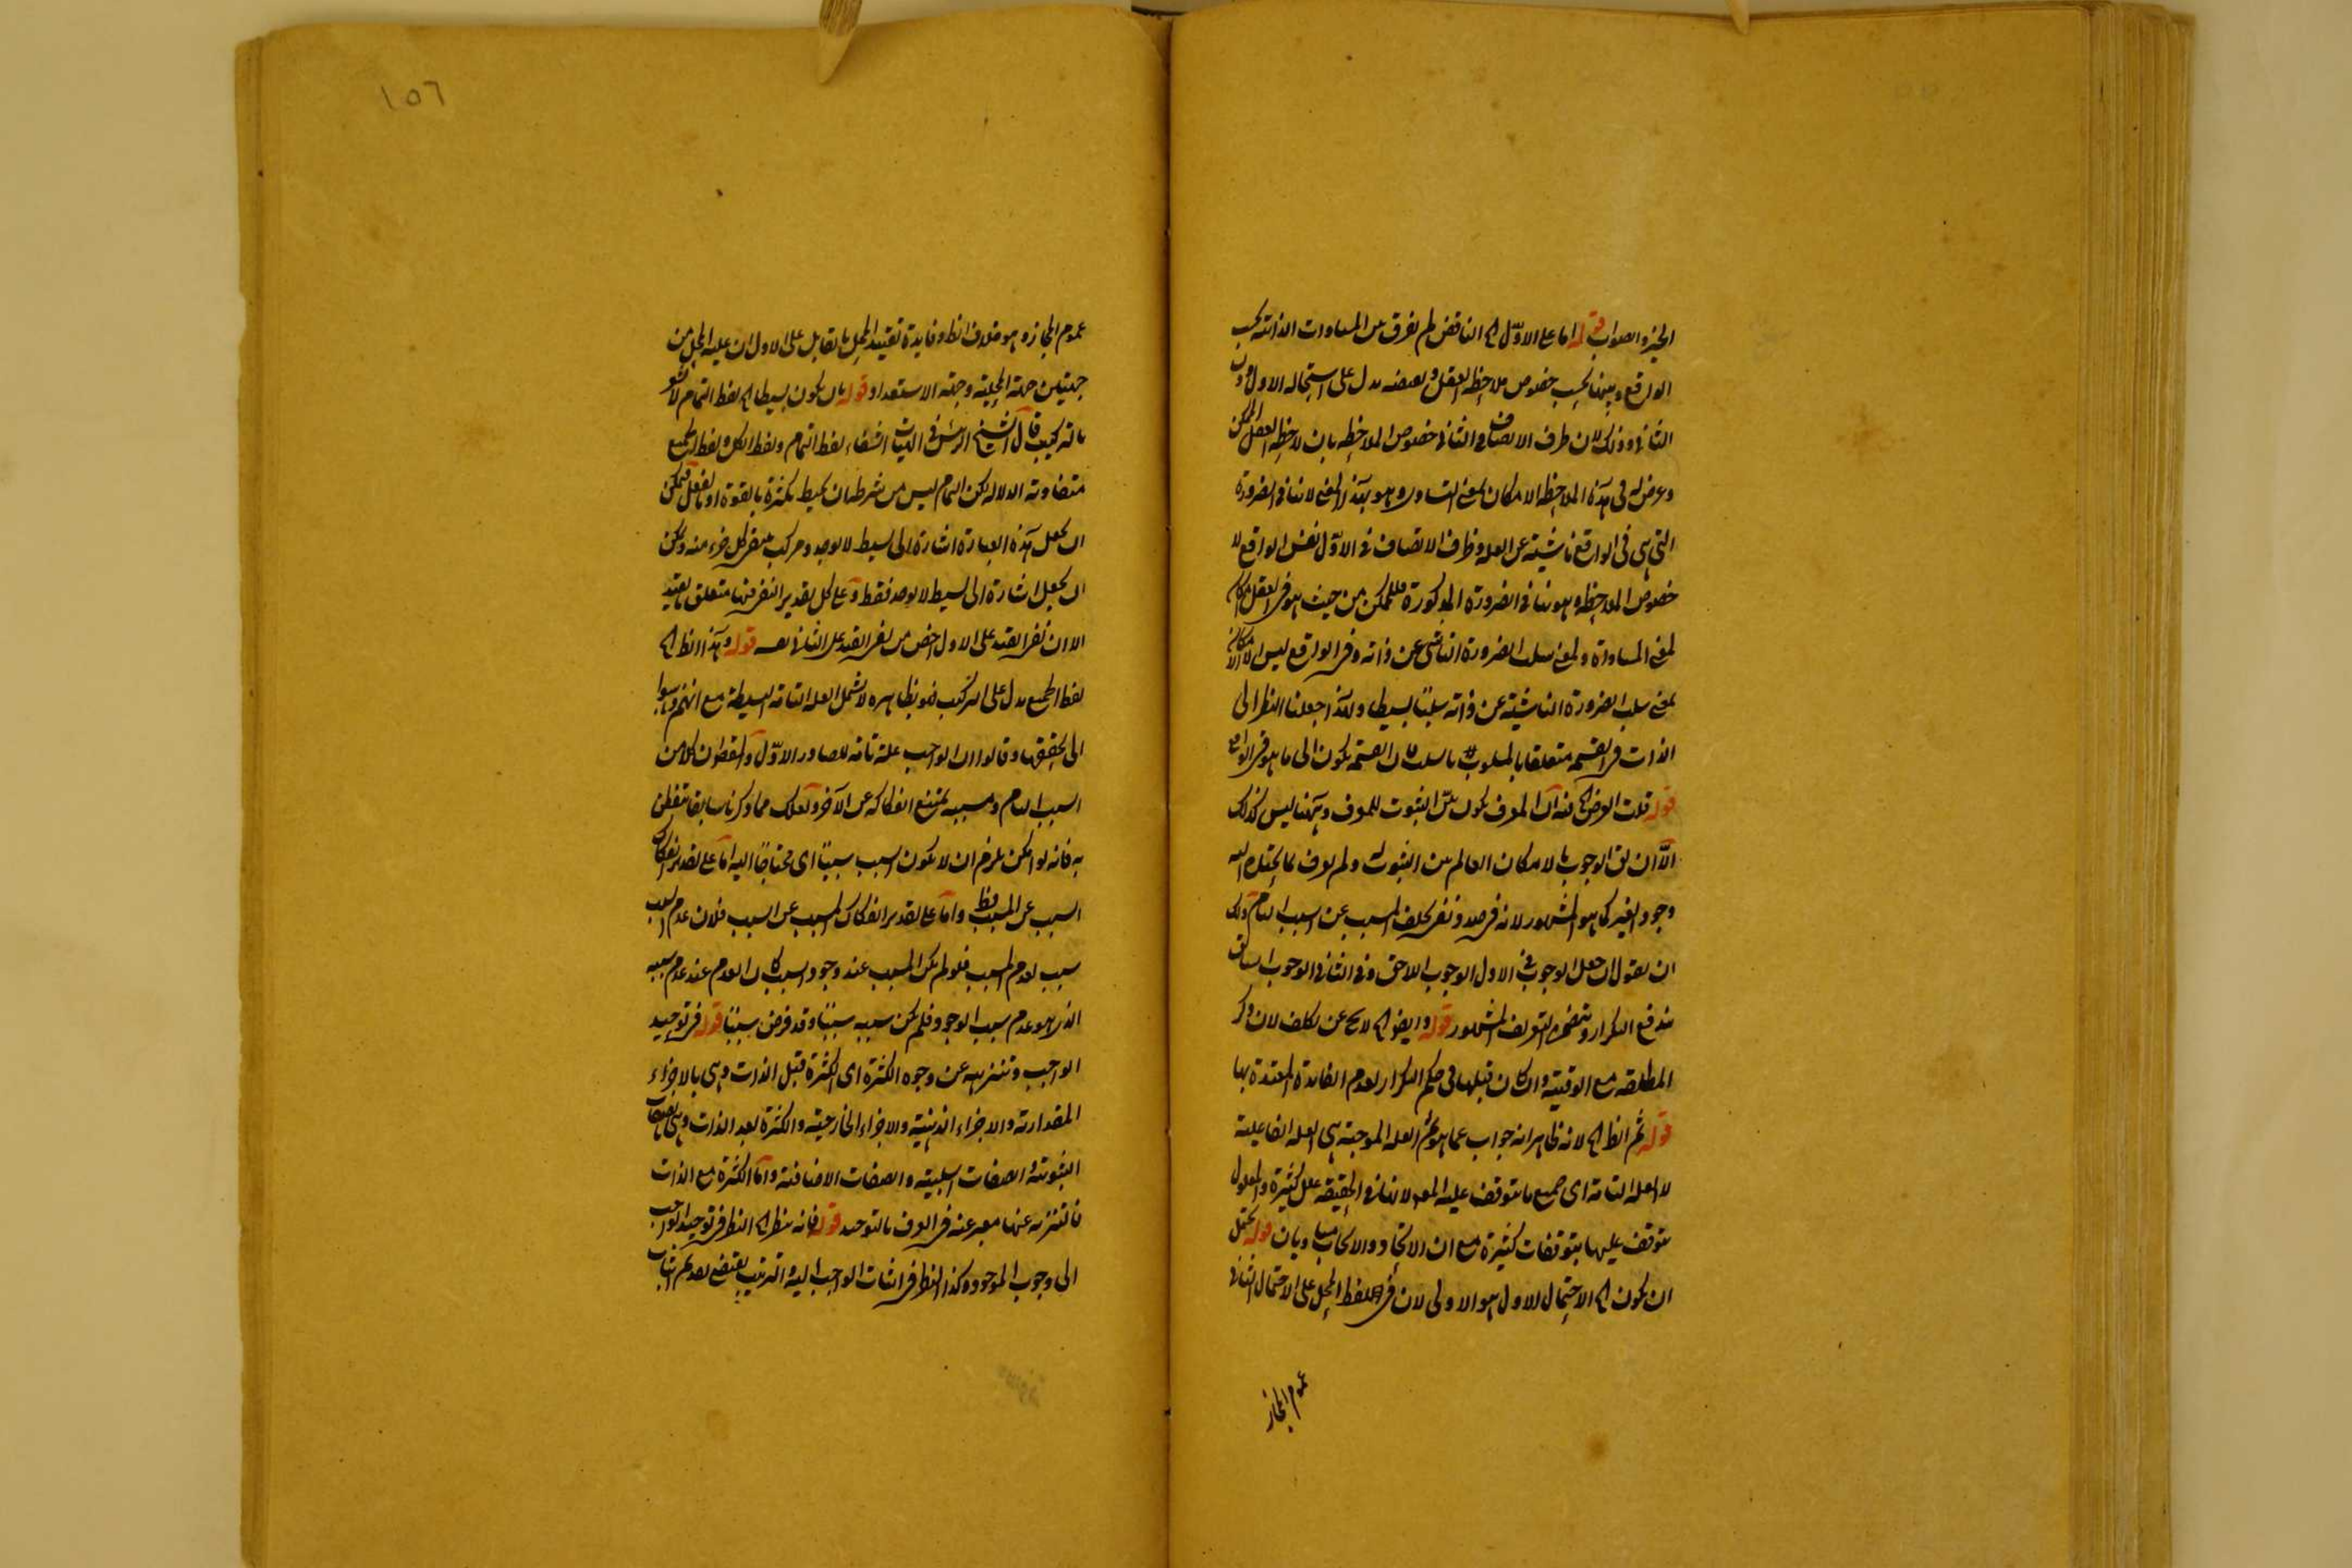 الخبر والصواب قوله اما على الاول الخ الناقض لم يفرق بين المساوات الذاتية بحسب
الواقع وبينها بحسب خصوص ملاحظة العقل وبعضه يدل على استحالة الاول
الثاني وذلك لان ظرف الاتصاف في الثاني خصوص الملاحظه بان لاحظ العقل الممكن
وعرض له في هذه الملاحظه الامكان بمعنى التساوي وهو بهذا المعنى لا ينافي الضرورة
التي هي في الواقع ناشية عن العله وظرف الاتصاف في الاول نفس الواقع لا
خصوص الملاحظه وهو ينافي الضرورة المذكورة فللممكن من حيث هو في العقل امكان
بمعنى المساواة وبمعنى سلب الضرورة الناشي عن ذاته وفي الواقع ليس الا الامكان
بمعنى سلب الضرورة الناشية عن ذاته سلبا بسيطا ولهذا جعلنا النظر الى
الذات في القسمة متعلقا بالمسلوب لا بالسلب القسمة يكون الى ما هو في الواقع
قوله قلت الغرض الخ فيه ان المعرف يكون بين الثبوت للمعرف وههنا ليس كذلك
الا ان الوجوب بالامكان العالم بين الثبوت ولم يعرف بما يحتاج اليه
وجود الغير كما هو المشهور لانه في صدد نفي تخلف المسبب عن السبب التام ولك
ان تقول ان جعل الوجوب في الاول الوجوب اللاحق وفي الثاني الوجوب السابق
يندفع التكرار ويتضح التعريف المشهور قوله وايضا الخ لا يخ عن تكلف لان ذكر
المطلقه مع الوقتية وان كان قبلها في حكم التكرار لعدم الفائدة المعتدة بها
قوله ثم الظ الخ لانه ظاهرا جواب عما هو ثم العله الموجبة هي العله الفاعلية
لا العله التامة اى جميع ما يتوقف عليه المعلول لانها في الحقيقه علل كثيرة والمعلول
يتوقف عليها بتوقفات كثيرة مع ان الايجاد والايجاب قوله يحتمل
ان يكون الخ الاحتمال الاول هو الاولى لان في لفظ الجعل على الاحتمال الثاني
عموم المجاز
١٥٦
عموم المجاز وهو خلاف الظ وفايدة تقييد المحل بالقابل على الاول ان عليه المحل من
جهتين جهة المحلية وجهة الاستعداد قوله بان يكون بسيطا الخ لفظ التمام لا يشعر
بالتركيب قال الشيخ الرئيس في الهيات الشفاء لفظ التمام ولفظ الكل ولفظ الجميع
متقاربة الدلاله لكن التمام ليس من شرطه ان يحيط بكثرة بالقوة او بالفعل فيمكن
ان يجعل هذه العبارة اشارة الى بسيط لا يوجد ومركب ينتفي كل جزء منه ويمكن
ان يجعل اشارة الى بسيط لا يوجد فقط وعلى كل تقدير النفي فيها متعلق بالقيد
الا ان نفي القيد على الاول اخص من نفي القيد على الثاني قوله وهذا الظ الخ
لفظ الجميع يدل على التركيب فهو بظاهره لا يشمل العله التامة البسيطة مع انهم ذهبوا
الى تحققها وقالوا ان الواجب علة تامة للصادر الاول والمقط كلا من
السبب التام ومسببه يمتنع انفكاكه عن الآخر ولعلك مما ذكرنا سابقا تتفطن
به فانه لو امكن يلزم ان لا يكون السبب سببا اى محتاجا اليه اما على تقدير انفكاك
السبب عن المسبب فظ واما على تقدير انفكاك المسبب عن السبب فلان عدم السبب
سبب لعدم المسبب فلو لم يكن المسبب عند وجود السبب كان العدم عند عدم سببه
الذى هو عدم سبب الوجود فلم يكن سببه سببا وقد فرض سببا قوله في توحيد
الواجب وتنزيهه عن وجوه الكثرة اى الكثرة قبل الذات وهي بالاجزاء
المقدارية والاجزاء الذهنية والاجزاء الخارجية والكثرة بعد الذات وهي بالصفات
الثبوتية والصفات السلبية والصفات الاضافية واما الكثرة مع الذات
فالتنزيه عنها معبر عنه في العرف بالتوحيد قوله فانه ينظر الخ النظر في توحيد الواجب
الى وجوب الموجود وكذا النظر في اثبات الواجب اليه والترتيب يقتضي تقديم اثبات